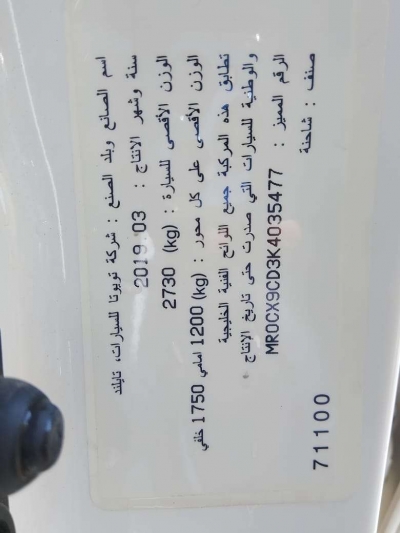 اسم الصانع وبلد الصنع : شركة تويوتا للسيارات، تايلند
سنة وشهر الانتاج : 2019.03
الوزن الأقصى للسيارة : 2730 (kg)
الوزن الأقصى على كل محور : 1200 (kg) امامي 1750 خلفي
تطابق هذه المركبة جميع اللوائح الفنية الخليجية
والوطنية للسيارات التي صدرت حتى تاريخ الإنتاج
الرقم المميز : MR0CX9CD3K4035477
صنف : شاحنة
71100